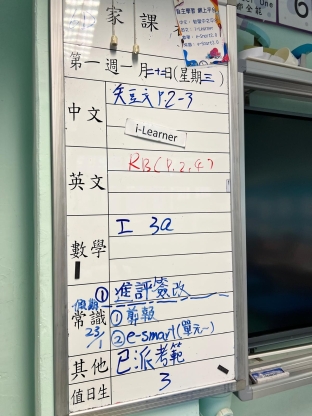 家課
自主學習 網上平台
第一週 月二十日(星期三)
中文 短文 P.2-3
i-Learner
英文 RB(P.2,4)
數學 工 3a
① 進評簽改
假期
常識 ① 剪報
23/1 ② e-smart(單元一)
其他 已派考範
值日生 3